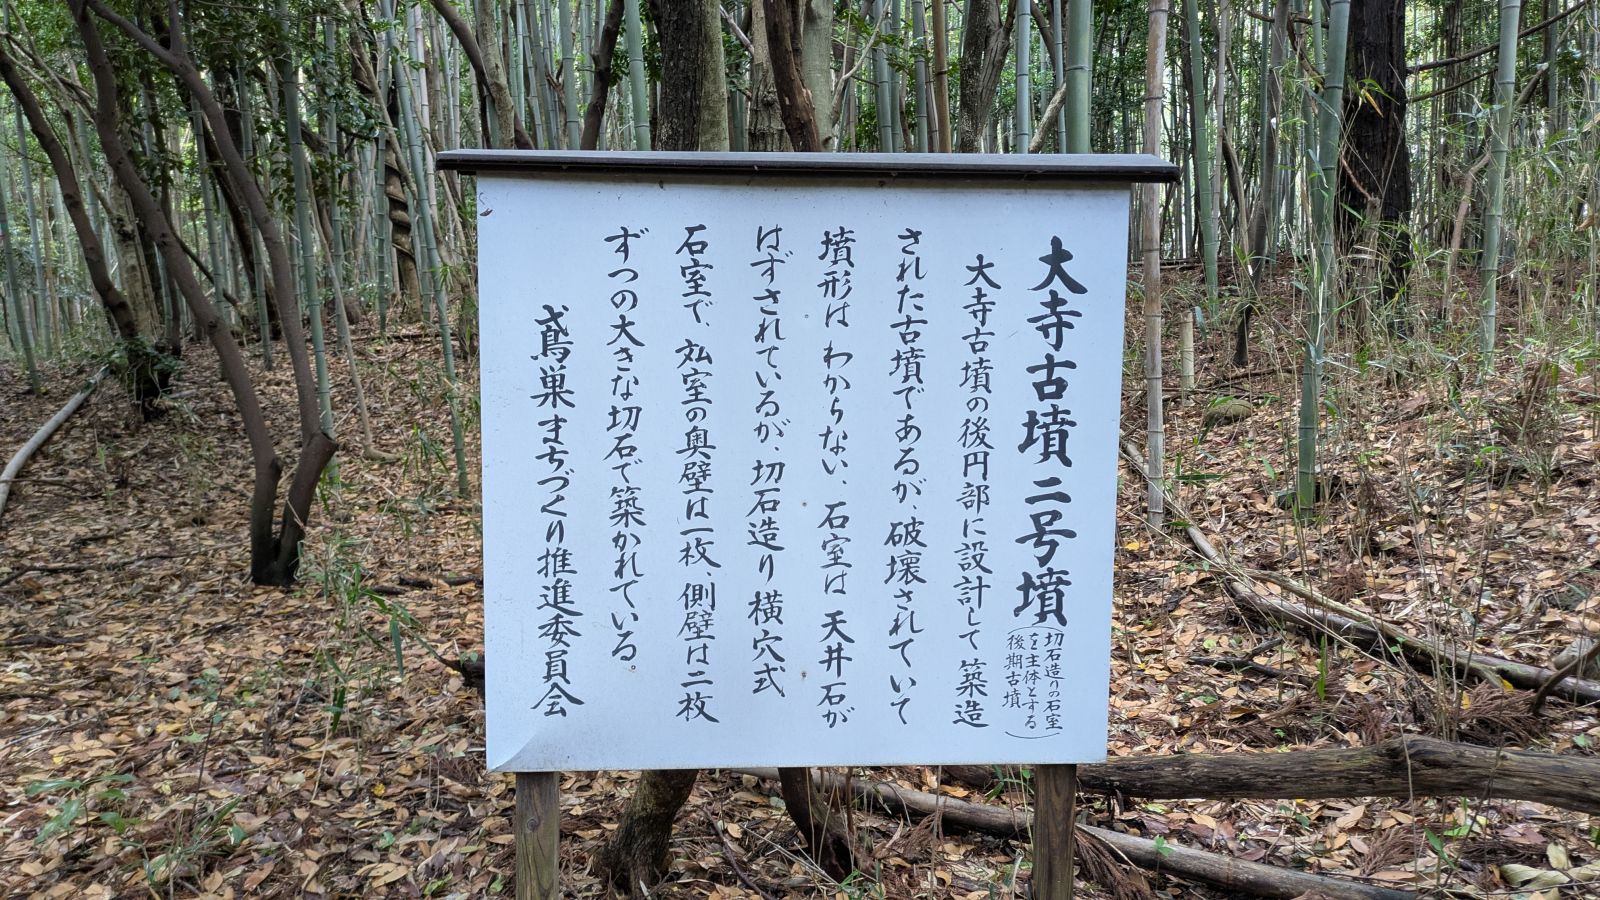 大寺古墳二号墳
(切石造りの石室
を主体とする
後期古墳)
大寺古墳の後円部に設計して築造
された古墳であるが、破壊されていて
墳形はわからない、石室は天井石が
はずされているが、切石造り横穴式
石室で、玄室の奥壁は一枚、側壁は二枚
ずつの大きな切石で築かれている。
鳶巣まちづくり推進委員会